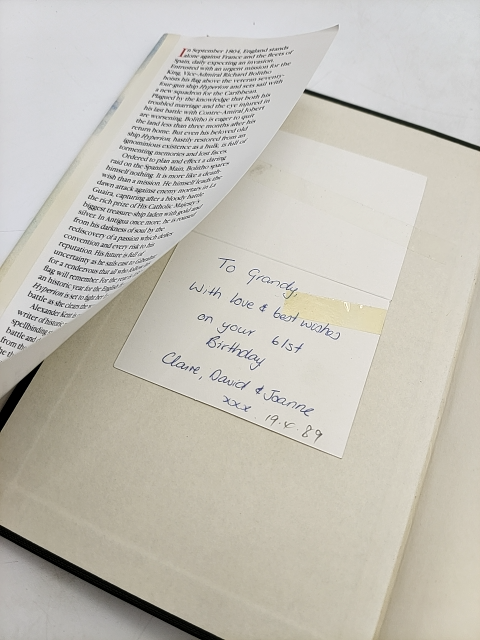 In September 1804, England stands
alone against France and the fleets of
Spain, daily expecting an invasion.
Entrusted with an urgent mission for the
King, Vice-Admiral Richard Bolitho
hoists his flag above the veteran seventy-
four-gun ship Hyperion and sets sail with
a new squadron for the Caribbean.
Plagued by the knowledge that both his
troubled marriage and the eye injured in
his last battle with Contre-Amiral Jobert
are worsening, Bolitho is eager to quit
the land less than three months after his
return home. But even his beloved old
ship Hyperion, hastily restored from an
ignominious existence as a hulk, is full of
tormenting memories and lost faces.
Ordered to plan and effect a daring
raid on the Spanish Main, Bolitho spares
himself nothing. It is more like a death-
wish than a mission. He himself leads the
dawn attack against enemy mortars in La
Guaira, capturing after a bloody battle
the rich prize of His Catholic Majesty's
biggest treasure-ship laden with gold and
silver. In Antigua once more, he is roused
from his darkness of soul by the
rediscovery of a passion which defies
convention and every risk to his
reputation. His future is full of
uncertainty as he sails east to Gibraltar
for a rendezvous that all who
flag will remember. For the year
an historic year for the English
Hyperion is set to fight
battle as she clears the
Alexander Kent
writer of historic
spellbinding
battle and
from the
be th
To Grandy,
With love & best wishes
on your 61st
Birthday
Claire, David & Joanne
xxx 19.4.89